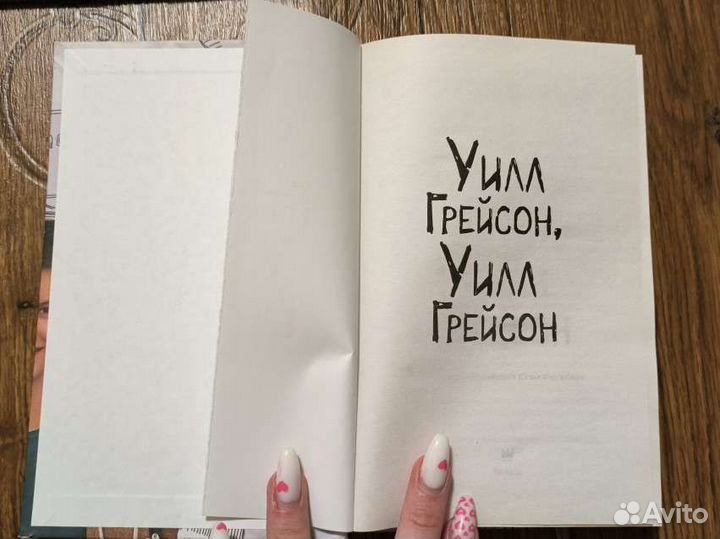 Уилл
Грейсон,
Уилл
Грейсон
Avito